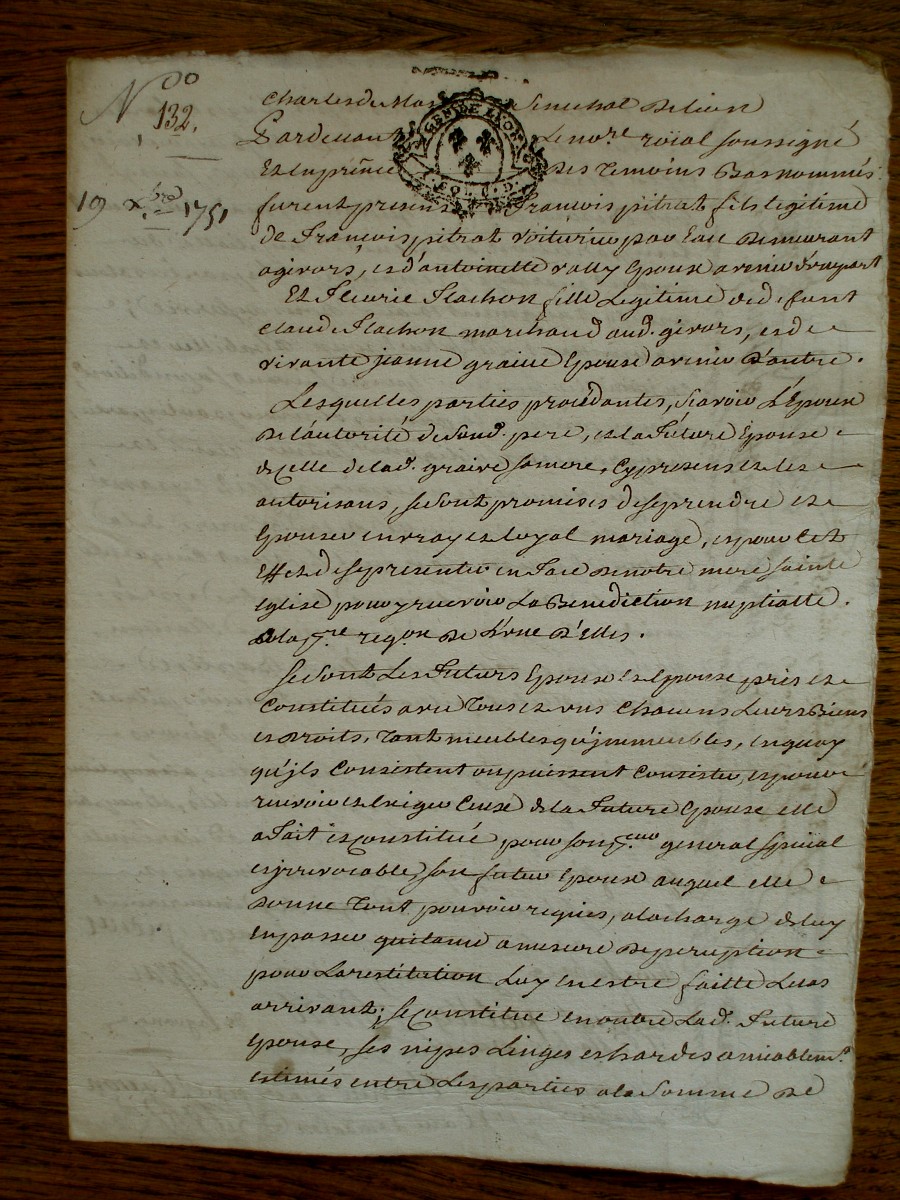 N.oo
132.
19 xbre 1751
Charles de Mas Senechal de Lion
Pardevant Le no.re roïal soussigné
Et en presence des temoins Bas nommés
furent presens françois pitrat fils legitime
de françois pitrat voiturier par Eau demeurant
a givors, et d'antoinette Epoux avenir d'vne part
Et fleurie flachon fille Legitime de defunt
Claude flachon marchand aud. givors, et de
vivante jeanne graive Epouse avenir d'autre.
Lesquelles parties procedantes, sçavoir L'Epoux
de l'autorité de sond. pere, et la future Epouse
de celle de lad. graive sa mere, Cy presens et les
autorisans, se sont promises de se prendre et
Epouser en vray et loyal mariage, et pour cet
Effet de se presenter en face de notre mere sainte
Eglise pour y recevoir La Benediction nuptialle.
a la p.re req.on de L'vne d'Elles.
Se sont Les futurs Epoux et Epouse pris et
Constitués avec tous et vns chacuns Leurs Biens
et droits, tant meubles qu'jmmeubles, en quoy
qu'jls Consistent ou puissent Consister, et pour
recevoir et Exiger Ceux de la future Epouse elle
a fait et constitué pour son p.eur general special
et jrrevocable, son futur Epoux auquel elle
donne tout pouvoir requis, a la charge de luy
En passer quitance a mesure de perception
pour La restitution Luy en estre faitte Le cas
arrivant; se constitue en outre Lad. future
Epouse, ses nipes Linges et hardes amiablem.t
estimés entre Les parties a la somme de
GEN DE LYON